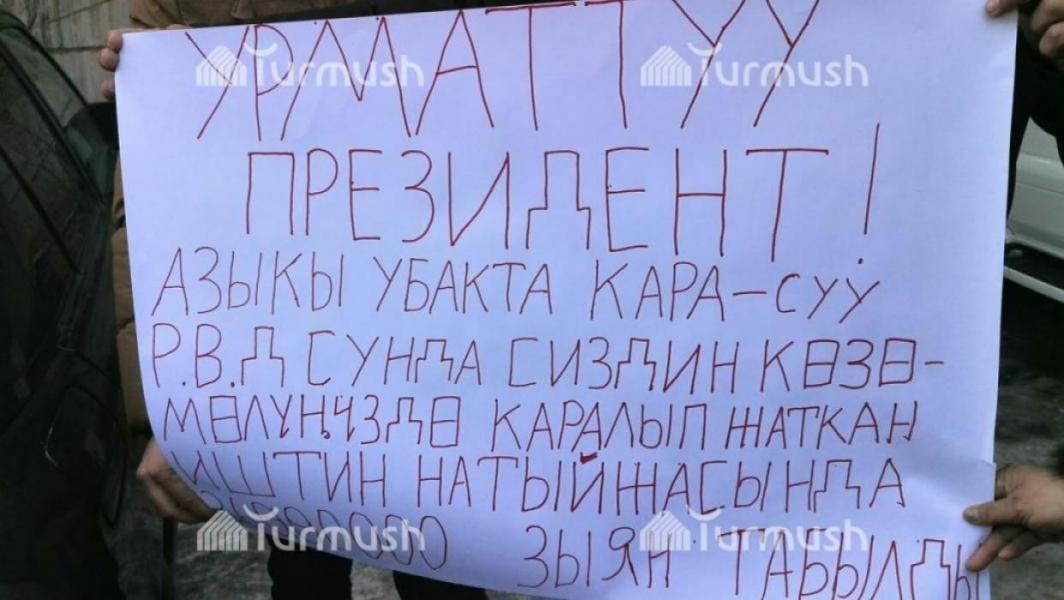 УРМАТТУУ
ПРЕЗИДЕНТ!
АЗЫКЫ УБАКТА КАРА-СУУ
Р.В.Д СУНДА СИЗДИН КӨЗӨ-
МӨЛҮҢҮЗДӨ КАРАЛЫП ЖАТКАН
ИШТИН НАТЫЙЖАСЫНДА
ЗЫЯН ТАБЫЛДЫ
Turmush Turmush
Turmush Turmush